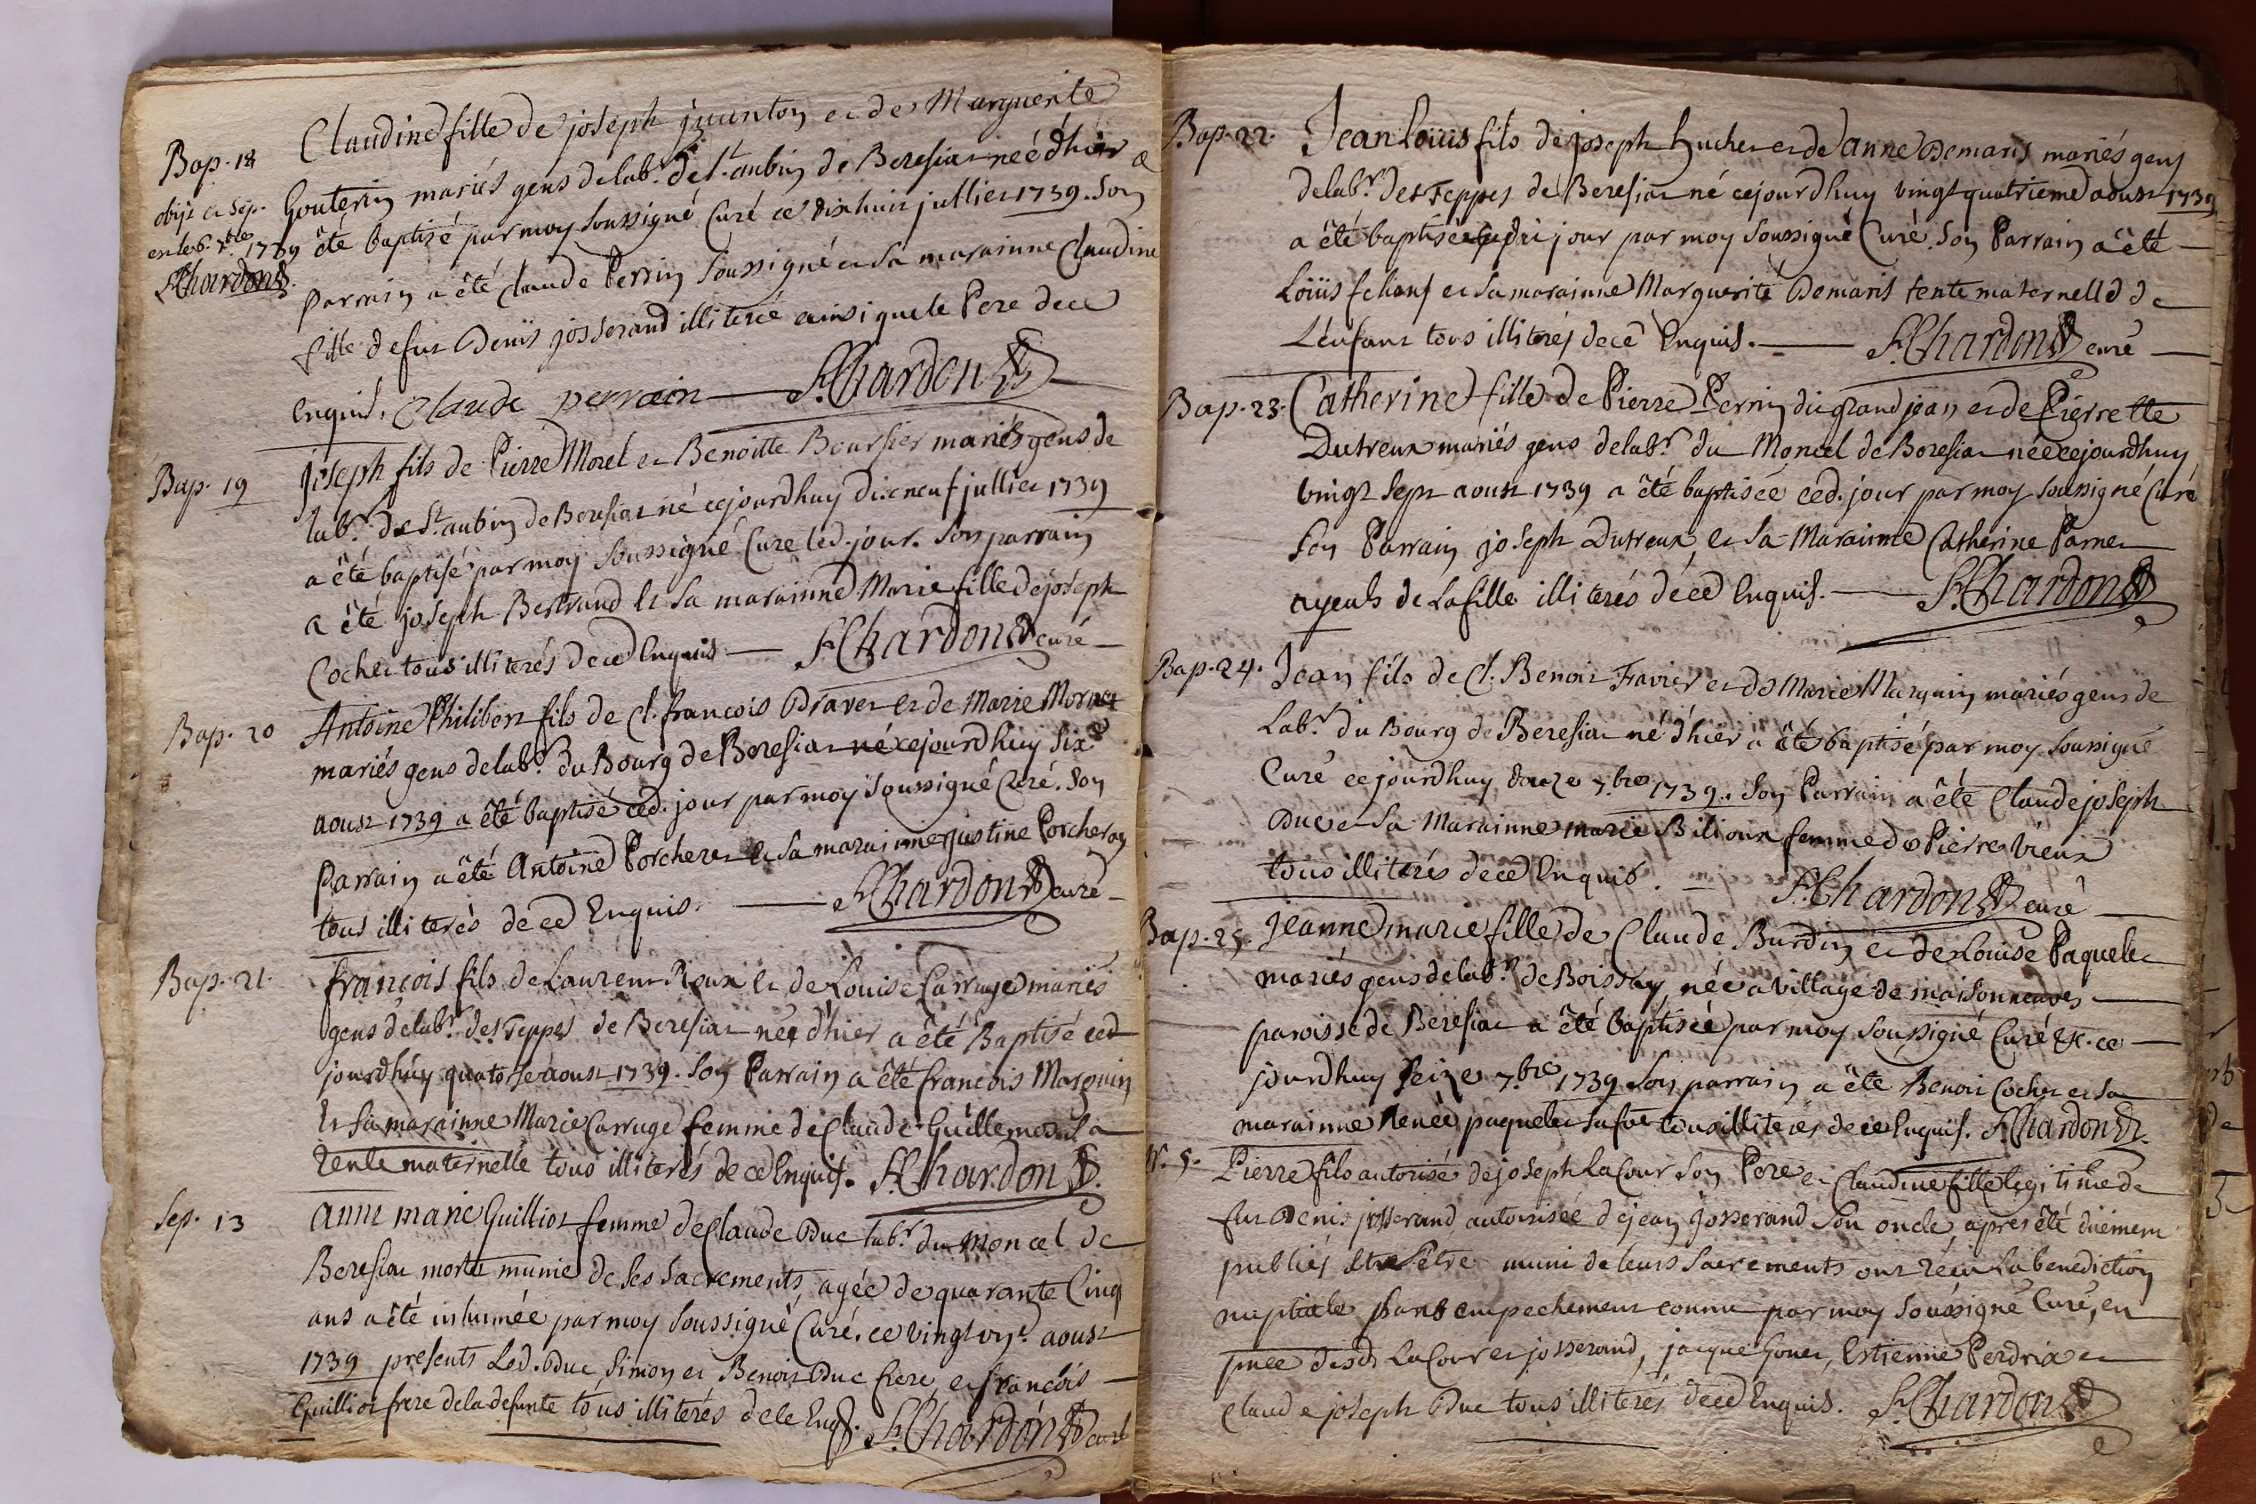 Bap. 18
obijt et sep.
en led. 7.bre
1739
F. Chardon
Claudine fille de joseph juunton et de Marguerite
Gouterin mariés gens de lab.r de St. aubin de Beresiat née d'hier a
été baptisé par moy soussigné Curé ce dixhuit juillet 1739. Son
parrain a êté claude Perrin soussigné et sa marainne Claudine
fille de fut Denis josserand illiterée ainsi que le Pere de ce
Enquis. Claude perrain F. Chardon
Bap. 19
joseph fils de Pierre Morel et Benoitte Boursier mariés gens de
lab.r de St aubin de Beresiat né cejourdhuy dixneuf julliet 1739
a êté baptisé par moy soussigné Curé led. jour. Son parrain
a êté joseph Bertrand et sa marainne Marie fille de joseph
Cochet tous illiterés de ce Enquis F. Chardon curé
Bap. 20
Antoine Philibert fils de Cl. françois Dravet et de Marie Mornet
mariés gens de lab.r du Bourg de Beresiat né cejourdhuy six
aoust 1739 a êté baptisé ced. jour par moy soussigné Curé. Son
Parrain a êté Antoine Porcheret et sa marainne justine Porcheron
tous illiterés de ce Enquis. F. Chardon curé
Bap. 21.
françois fils de Laurent Roux et de Louise Carruge mariés
gens de lab.r des Teppes de Beresiat né d'hier a êté Baptisé ced
jourdhuy quatorse aoust 1739. Son Parrain a êté françois Marguin
Et sa marainne Marie Carruge femme de Claude Guillemot sa
tente maternelle tous illiterés de ce Enquis. F. Chardon
Sep. 13
anne marie Guilliot femme de Claude Duc lab.r du Moncel de
Beresiat morte munie de ses sacrements, agée de quarante Cinq
ans a êté inhumée par moy soussigné Curé. ce vingt un.e aoust
1739 presents Led. Duc, Simon et Benoit Duc frere, et françois
Guilliot frere de la defunte tous illiterés de ce Enq. F. Chardon curé
Bap. 22.
Jean Loüis fils de joseph huchet et de anne Demaris mariés gens
de lab.r des Teppes de Beresiat né cejourdhuy vingt quatrieme aoust 1739
a êté baptisé led. jour par moy soussigné Curé. Son Parrain a êté
Loüis fchauf et sa marainne Marguerite Demaris tente maternelle de
L'enfant tous illiterés de ce Enquis. F. Chardon curé
Bap. 23.
Catherine fille de Pierre Perrin dit grand jean et de Pierrette
Dutreux mariés gens de lab.r du Moncel de Beresiat née cejourdhuy
vingt sept aoust 1739 a êté baptisée ced. jour par moy soussigné Curé
Son Parrain joseph Dutreux et sa Marainne Catherine Parnet
ayeuls de la fille illiterés de ce Enquis. F. Chardon
Bap. 24.
Jean fils de Cl. Benoit Favier et de Marie Marguin mariés gens de
Lab.r du Bourg de Beresiat né d'hier a êté baptisé par moy soussigné
Curé cejourdhuy douze 7.bre 1739. Son Parrain a êté Claude joseph
Duc et sa Marainne marie Bilioux femme de Pierre Vieux
tous illiterés de ce Enquis. F. Chardon curé
Bap. 25.
jeanne marie fille de Claude Burdin et de Louise Paquelet
mariés gens de lab.r de Boissay, née a village de maisonneuves
paroisse de Beresiat a êté baptisée par moy soussigné Curé &c. ce
jourdhuy seize 7.bre 1739 Son parrain a êté Benoit Cochet et sa
marainne Renée paquelet tous illiterés de ce Enquis. F. Chardon
5.
Pierre fils autorisé de joseph LaCour son Pere et Claudine fille legitime de
fut Denis josserand autorisée de jean josserand son oncle, apres êté düement
publiés Et s'etre muni de leurs sacrements ont recu La benediction
nuptiale sans empechement connu par moy soussigné Curé, en
pnce desd. LaCour et josserand, jacque Gonet, Estienne Perdrix et
claude joseph Duc tous illiterés de ce Enquis. F. Chardon